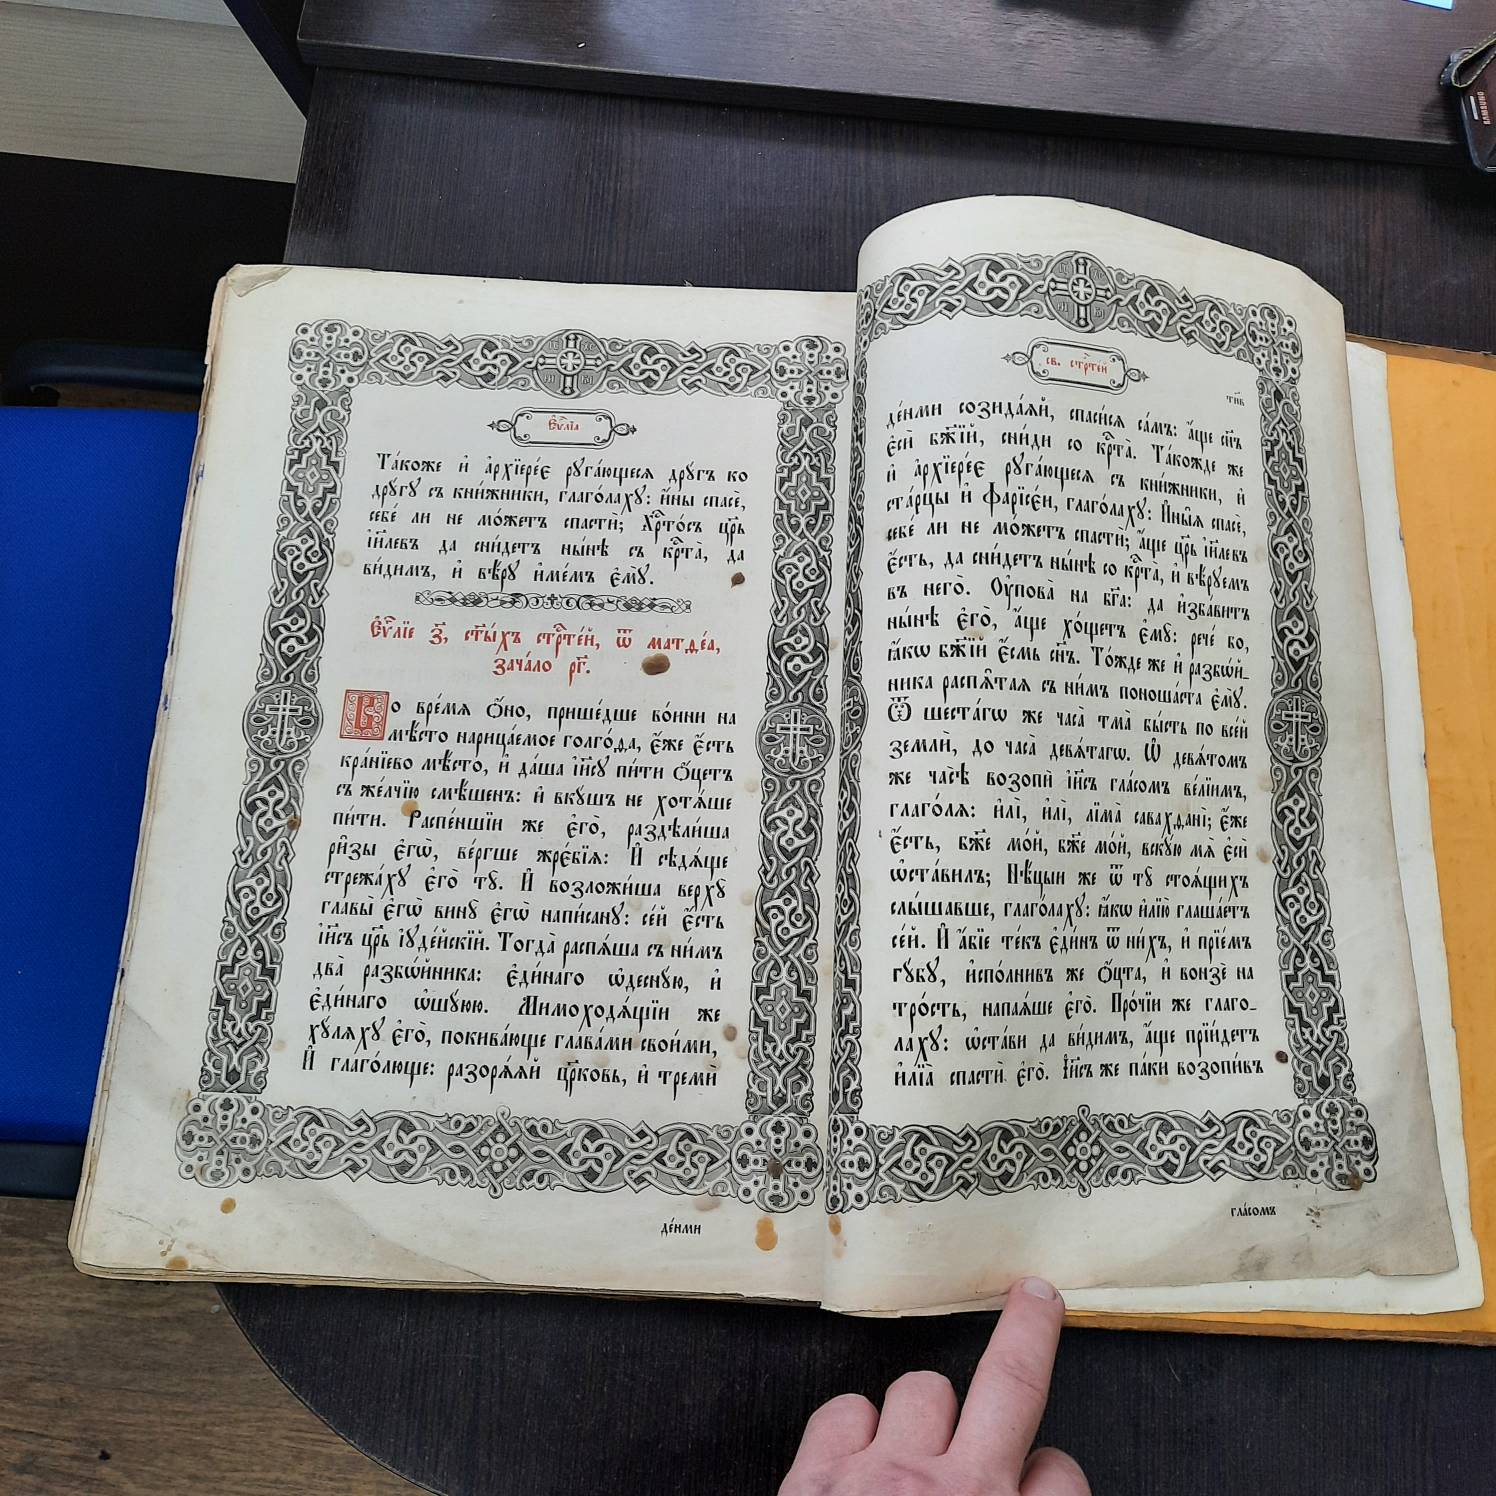 Є҆ѵⷢ҇лїа
Та́коже и҆ а҆рхїере́є рꙋга́ющесѧ дрꙋ́гъ ко
дрꙋ́гꙋ съ кни́жники, глаго́лахꙋ: и҆́ны спасѐ,
себе́ ли не мо́жетъ спастѝ; Хрⷭ҇то́съ цр҃ь
і҆и҃левъ да сни́детъ ны́нѣ съ крⷭ҇та̀, да
ви́димъ, и҆ вѣ́рꙋ и҆ме́мъ є҆мꙋ̀.
Є҆ѵⷢ҇лїе з҃, ст҃ы́хъ стрⷭ҇те́й, ѿ матѳе́а,
зача́ло рг҃.
Во вре́мѧ ѻ҆́но, прише́дше во́ини на
мѣ́сто нарица́емое голго́ѳа, є҆́же є҆́сть
кра́нїево мѣ́сто, и҆ да́ша і҆и҃сꙋ пи́ти ѻ҆́цетъ
съ же́лчїю смѣ́шенъ: и҆ вкꙋ́шъ не хотѧ́ше
пи́ти. Распе́ншїи же є҆го̀, раздѣли́ша
ри̑зы є҆гѡ̀, ве́ргше жрє́бїѧ: И҆ сѣдѧ́ще
стрежа́хꙋ є҆го̀ тꙋ̀. И҆ возложи́ша верхꙋ̀
главы̀ є҆гѡ̀ винꙋ̀ є҆гѡ̀ напи́санꙋ: се́й є҆́сть
і҆и҃съ цр҃ь і҆ꙋде́йскїй. Тогда̀ распѧ́ша съ ни́мъ
два̀ разбѡ́йника: є҆ди́наго ѡ҆деснꙋ́ю, и҆
є҆ди́наго ѡ҆шꙋ́юю. Мимоходѧ́щїи же
хꙋ́лѧхꙋ є҆го̀, покива́юще глава́ми свои́ми,
И҆ глаго́люще: разорѧ́ѧй цр҃ковь, и҆ тремѝ
де́нми
св. стрⷭ҇те́й
тн҃в
де́нми созида́ѧй, спаси́сѧ са́мъ: а҆́ще сн҃ъ
є҆сѝ бж҃їй, сни́ди со крⷭ҇та̀. Та́кожде же
и҆ а҆рхїере́є рꙋга́ющесѧ съ кни́жники, и҆
ста́рцы и҆ фарїсе́и, глаго́лахꙋ: И҆ны̑ѧ спасѐ,
себе́ ли не мо́жетъ спастѝ; а҆́ще цр҃ь і҆и҃левъ
є҆́сть, да сни́детъ ны́нѣ со крⷭ҇та̀, и҆ вѣ́рꙋемъ
въ него̀. Оу҆пова̀ на бг҃а: да и҆зба́витъ
ны́нѣ є҆го̀, а҆́ще хо́щетъ є҆мꙋ̀: рече́ бо,
ꙗ҆́кѡ бж҃їй є҆́смь сн҃ъ. То́жде же и҆ разбѡ́й-
ника распѧ̑таѧ съ ни́мъ поноша́ста є҆мꙋ̀.
Ѿ шеста́гѡ же часа̀ тма̀ бы́сть по все́й
землѝ, до часа̀ девѧ́тагѡ. Ѡ҆ девѧ́томъ
же часѣ̀ возопѝ і҆и҃съ гла́сомъ ве́лїимъ,
глаго́лѧ: и҆лі̀, и҆лі̀, лїма̀ савахѳанї; є҆́же
є҆́сть, бж҃е мо́й, бж҃е мо́й, вскꙋ́ю мѧ̀ є҆сѝ
ѡ҆ста́вилъ; Нѣ́цыи же ѿ тꙋ̀ стоѧ́щихъ
слы́шавше, глаго́лахꙋ: ꙗ҆́кѡ и҆лїю̀ глаша́етъ
се́й. И҆ а҆́бїе те́къ є҆ди́нъ ѿ ни́хъ, и҆ прїе́мъ
гꙋ́бꙋ, и҆спо́лнивъ же ѻ҆́цта, и҆ вонзѐ на
тро́сть, напаѧ́ше є҆го̀. Про́чїи же глаго́-
лахꙋ: ѡ҆ста́ви да ви́димъ, а҆́ще прїи́детъ
и҆лїа̀ спастѝ є҆го̀. І҆и҃съ же па́ки возопи́въ
гла́сомъ
SAMSUNG